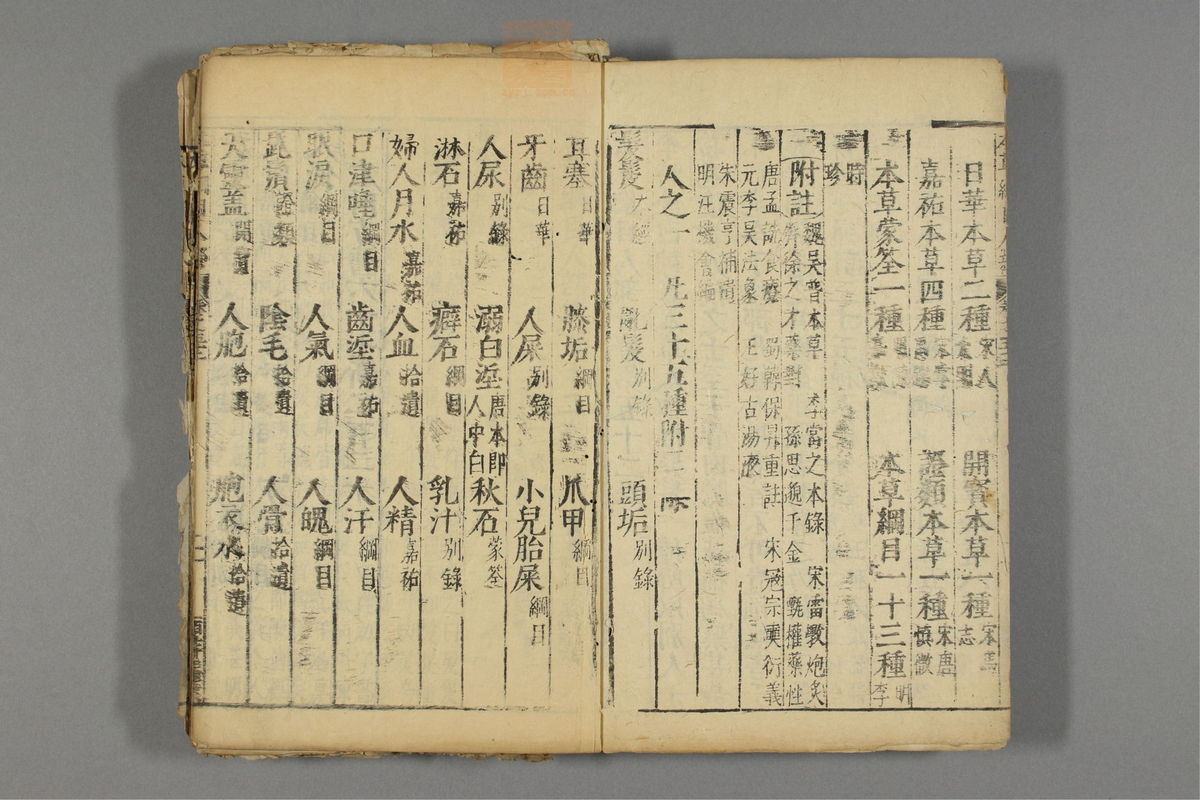 日華本草二種 宋人 開寶本草一種 宋 志
嘉祐本草四種 證類本草一種 宋唐慎微
本草蒙筌一種 本草綱目一十三種 明李
時珍
附註 魏吳普本草 李當之本錄 宋雷斆炮炙 齊徐之才藥對 孫思邈千金 甄權藥性
唐孟詵食療 蜀韓保昇重註 宋寇宗奭衍義 元李吳法象 王好古湯液
朱震亨補遺 明汪機會編
人之一 凡三十五種附二
髮髲 本經 亂髮 別錄 頭垢 別錄
耳塞 日華 膝垢 綱目 爪甲 綱目
牙齒 日華 人屎 別錄 小兒胎屎 綱目
人尿 別錄 溺白垽 唐本即人中白 秋石 蒙筌
淋石 嘉祐 癖石 綱目 乳汁 別錄
婦人月水 嘉祐 人血 拾遺 人精 嘉祐
口津唾 綱目 齒垽 嘉祐 人汗 綱目
眼淚 綱目 人氣 綱目 人魄 綱目
髭鬚 拾遺 陰毛 拾遺 人骨 拾遺
天靈蓋 開寶 人胞 拾遺 胞衣水 拾遺